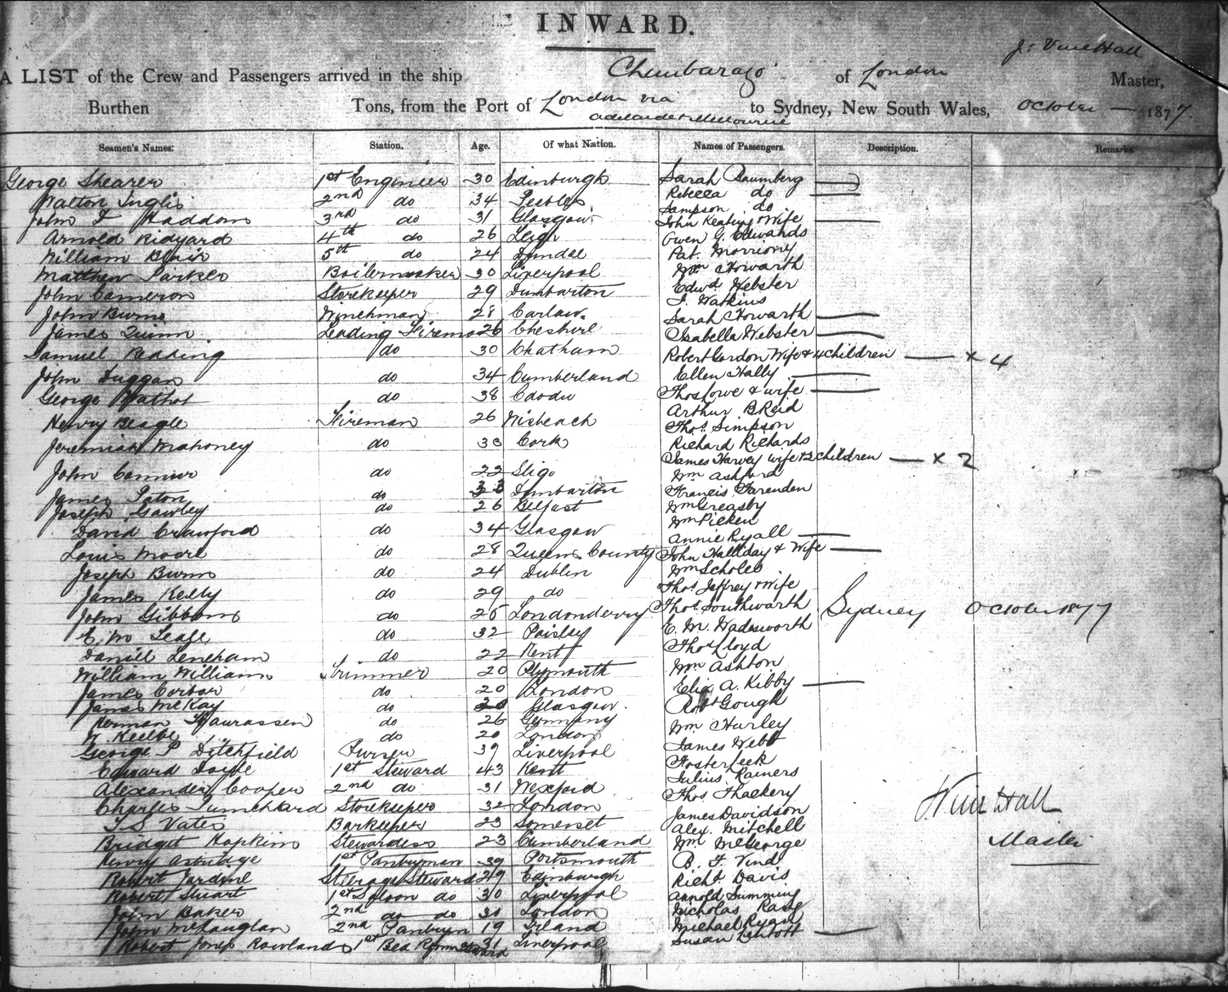 INWARD.
J. Vine Hall
A LIST of the Crew and Passengers arrived in the ship Chimborazo of London Master,
Burthen Tons, from the Port of London via Adelaide & Melbourne to Sydney, New South Wales, October 1877
Seamen's Names: Station. Age. Of what Nation. Names of Passengers. Description. Remarks.
George Shearer 1st Engineer 30 Edinburgh Sarah Baumberg
Walton Inglis 2nd do 34 Peebles Rebecca do
John F Haddow 3rd do 31 Glasgow Sampson do
John Keating & Wife
Arnold Ridyard 4th do 26 Leigh Owen G. Edwards
William Blair 5th do 24 Dundee Pat. Morriony
Matthew Parker Boilermaker 30 Liverpool Wm Howarth
John Cameron Storekeeper 29 Dumbarton Edwd Webster
John Burns Winchman 28 Carlow J. Watkins
Sarah Howarth
James Quinn Leading Fireman 26 Cheshire Isabella Webster
Samuel do 30 Chatham Robert Gordon Wife & 4 children x 4
John Duggan do 34 Cumberland Ellen Hally
George do 38 Thos Lowe & wife
Henry Beagle Fireman 26 Wisbeach Arthur B Reid
Thos Simpson
Jeremiah Mahoney do 33 Cork Richard Richards
James Harvey wife & 2 children x 2
John Connor do 22 Sligo Wm Ashford
James Paton do 33 Dumbarton Francis Farenden
Joseph Gawley do 26 Belfast Wm Greasby
David Crawford do 34 Glasgow Wm Picken
Annie Ryall
Louis Moore do 28 Queens County John Halliday & Wife
Joseph Burns do 24 Dublin Wm Scholes
James Kelly do 29 do Thos Jeffrey & wife
John Gibbons do 25 Londonderry Thos Southworth Sydney October 1877
E. W. do 32 Paisley E. M. Wadsworth
Daniel Leneham do 22 Kent Thos Lloyd
William Williams Trimmer 20 Plymouth Wm Ashton
James Corbar do 20 London Eliza A. Kibby
James McKay do 20 Glasgow. Robt Gough
Herman Haurassen do 26 Germany Wm Hurley
do 20 London James Webb
George P Ditchfield Purser 39 Liverpool Foster
Edward Doyle 1st Steward 43 Kent Julius Rainers
Alexander Cooper 2nd do 31 Wexford Thos Thackery
Charles Storekeeper 32 London James Davidson
T. S. Vater Barkeeper 23 Somerset Alex. Mitchell
Bridget Hopkins Stewardess 23 Cumberland Wm McGeorge
Vine Hall
Master
Henry Astridge 1st Pantryman 39 Portsmouth B. F. Vind
Robert Jardine Steerage Steward 29 Edinburgh Richd Davis
Robert Stuart 1st Saloon do 30 Liverpool Arnold Summing
John Baker 2nd do do 30 London Nicholas
John McLauglan 2nd Pantryn 19 Ireland Michael Ryan
Robert Jones Rowlands 1st Bed Room Steward 31 Liverpool Susan Lintott